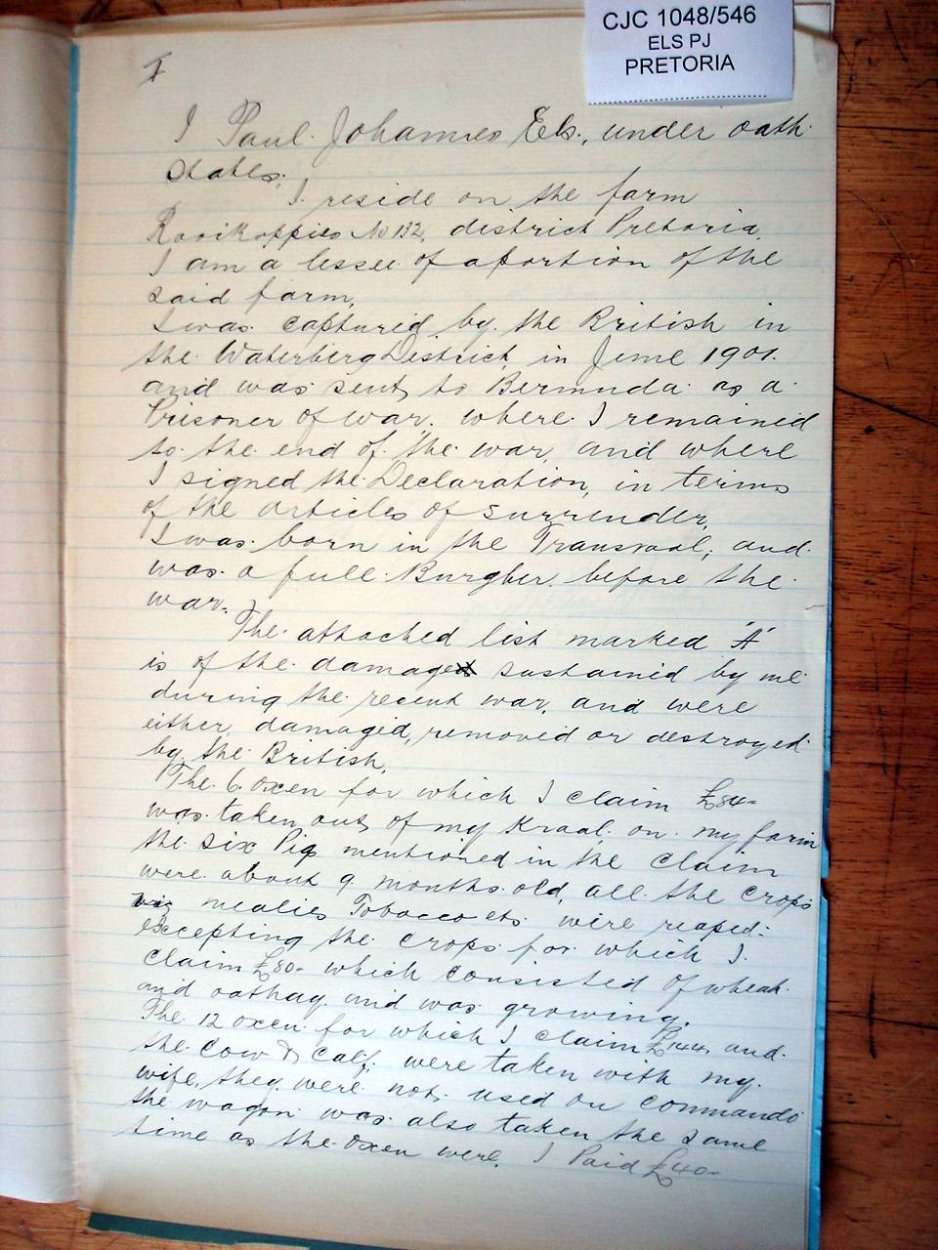 CJC 1048/546
ELS PJ
PRETORIA
I
I Paul Johannes Els., under oath
states;
I reside on the farm
Rooikoppies No 132, district Pretoria
I am a lessee of a portion of the
said farm.
I was captured by the British in
the Waterberg District, in June 1901.
and was sent to Bermuda as a
Prisoner of war, where I remained
to the end of the war, and where
I signed the Declaration, in terms
of the articles of surrender.
I was born in the Transvaal, and
was a full Burgher before the
war.
The attached list marked "A"
is of the damage sustained by me
during the recent war, and were
either damaged, removed or destroyed
by the British.
The 6 oxen for which I claim £84-
was taken out of my Kraal on my farm
the six Pigs mentioned in the claim
were about 9 months old, all the crops
viz mealies Tobacco etc were reaped
excepting the crops for which I
claim £80- which consisted of wheat
and oathay and was growing.
The 12 oxen for which I claim £144, and
the cow & calf were taken with my
wife, they were not used on commando
the wagon was also taken the same
time as the oxen were. I Paid £40-